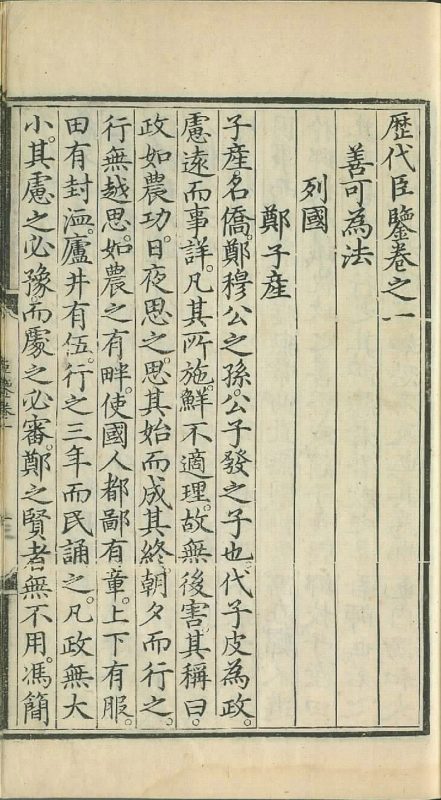 歷代臣鑒卷之一
善可為法
列國
鄭子產
子產名僑。鄭穆公之孫。公子發之子也。代子皮為政。
慮遠而事詳。凡其所施鮮不適理。故無後害。其稱曰。
政如農功。日夜思之。思其始而成其終。朝夕而行之。
行無越思。如農之有畔。使國人都鄙有章。上下有服。
田有封洫。廬井有伍。行之三年而民誦之。凡政無大
小。其慮之必豫。而處之必審。鄭之賢者無不用。馮簡